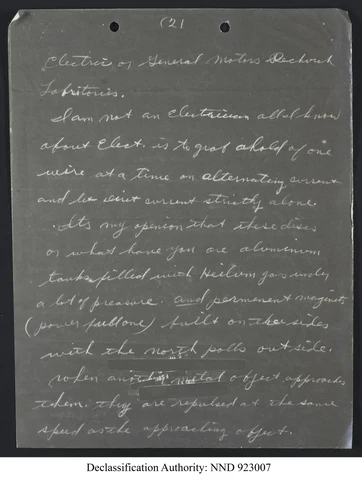 (2)
Electric or General Motors Research
Labritories.
I am not an Electricium all I know
about Elect. is to grab ahold of one
wire at a time on alternating current
and let direct current strictly alone.
Its my openion that these discs
or what have you are aluminum
tanks filled with Heilum gas under
a lot of preasure. and permenent magnets
(power full one) built on the sides
with the north polls outside.
when another metal object approaches
them. they are repulsed at the same
speed as the approaching object.
Declassification Authority: NND 923007